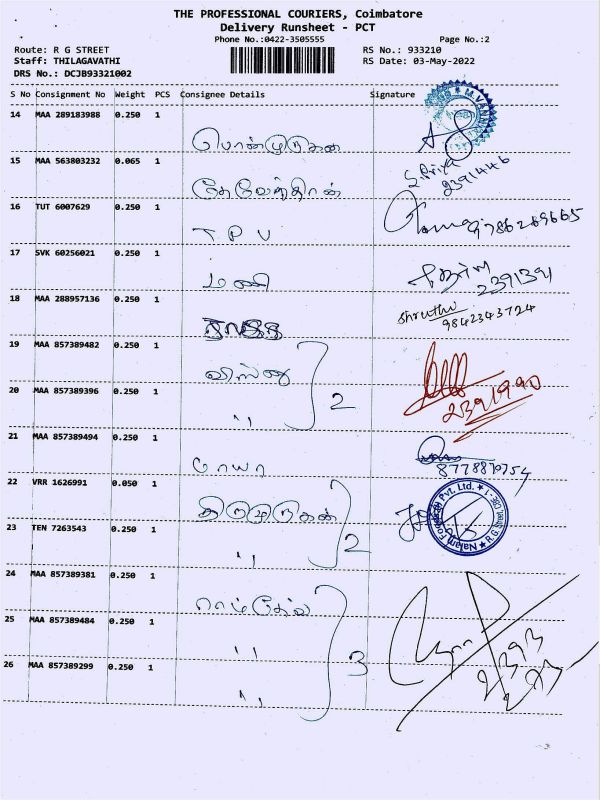 THE PROFESSIONAL COURIERS, Coimbatore
Delivery Runsheet - PCT
Phone No.:0422-3505555 Page No.:2
Route: R G STREET RS No.: 933210
Staff: THILAGAVATHI RS Date: 03-May-2022
DRS No.: DCJB93321002
S No Consignment No Weight PCS Consignee Details Signature
14 MAA 289183988 0.250 1
பொன்முருகன்
15 MAA 563803232 0.065 1 S.Priya
2391446
தேவேந்திரன்
16 TUT 6007629 0.250 1 9786289665
T P V
17 SVK 60256021 0.250 1 2391391
மணி
18 MAA 288957136 0.250 1 Shruthi
9842343724
19 MAA 857389482 0.250 1
விஸ்னு
20 MAA 857389396 0.250 1 2391990
" 2
21 MAA 857389494 0.250 1
8778870754
22 VRR 1626991 0.050 1
திருமுருகன்
23 TEN 7263543 0.250 1
" 2
24 MAA 857389381 0.250 1
ராம்தேவ்
25 MAA 857389484 0.250 1
"
3
26 MAA 857389299 0.250 1
"